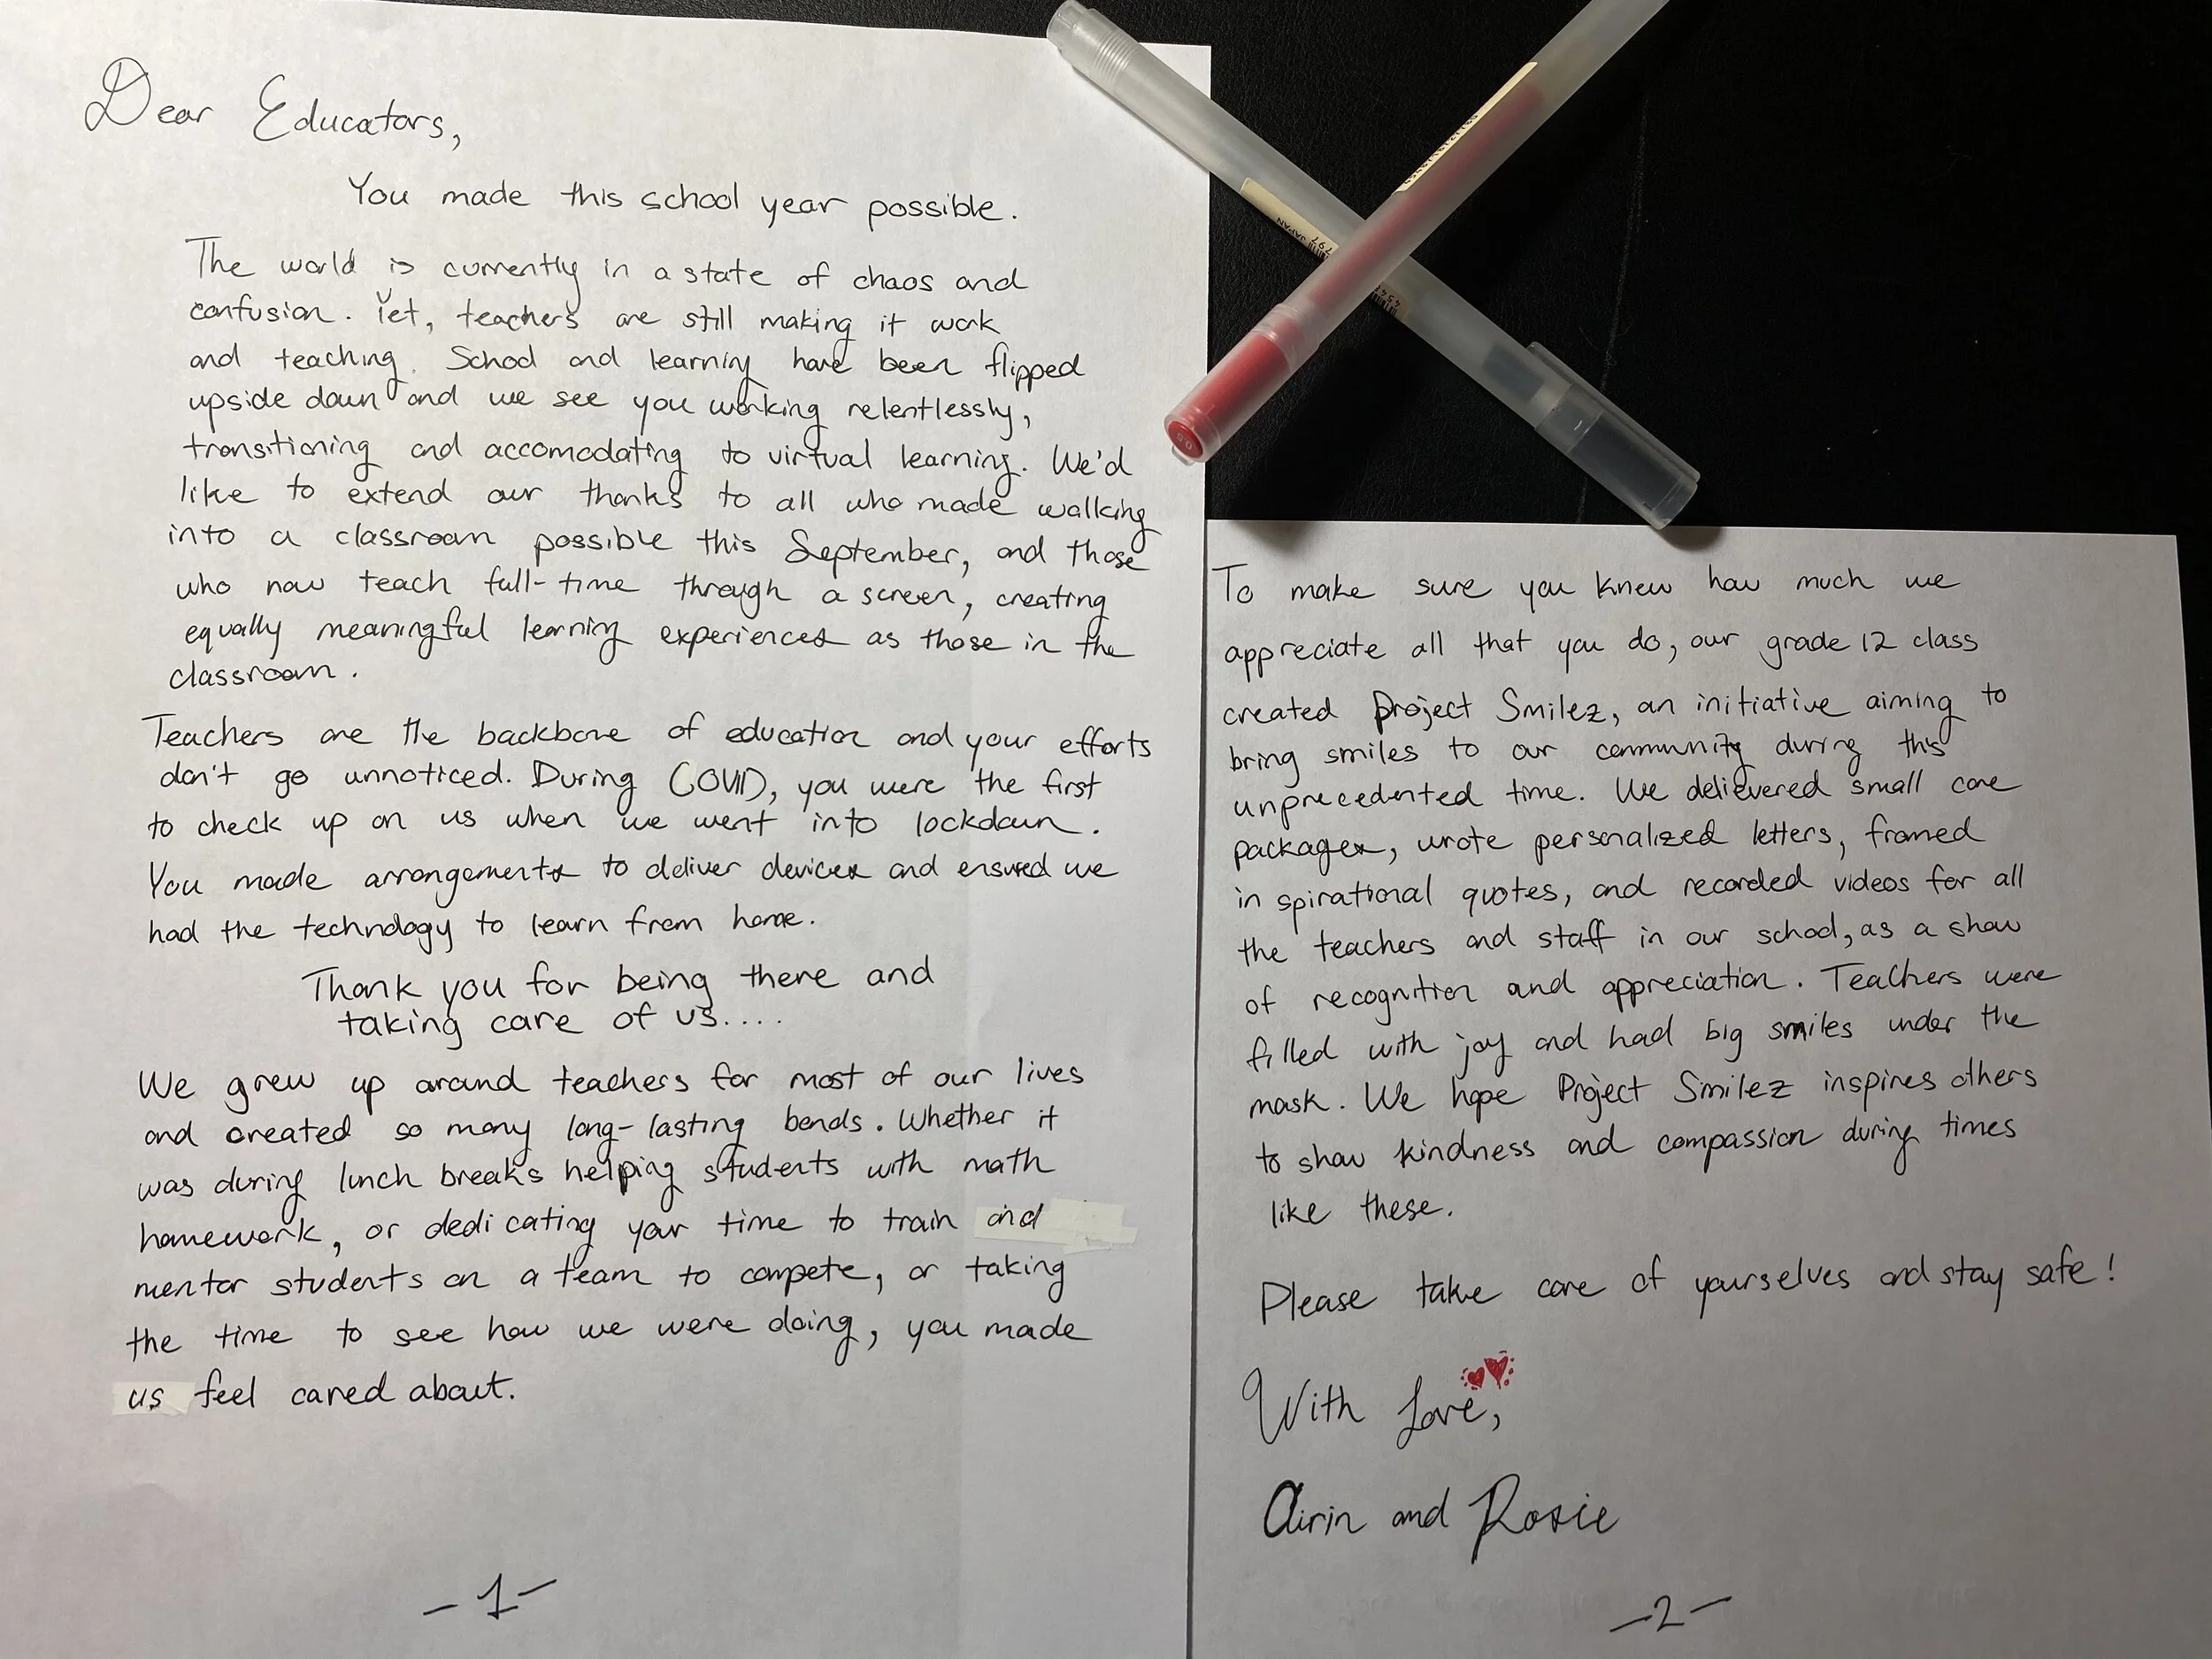 Dear Educators,
You made this school year possible.
The world is currently in a state of chaos and
confusion. Yet, teachers are still making it work
and teaching. School and learning have been flipped
upside down and we see you working relentlessly,
transitioning and accomodating to virtual learning. We'd
like to extend our thanks to all who made walking
into a classroom possible this September, and those
who now teach full-time through a screen, creating
equally meaningful learning experiences as those in the
classroom.
Teachers are the backbone of education and your efforts
don't go unnoticed. During COVID, you were the first
to check up on us when we went into lockdown.
You made arrangements to deliver devices and ensured we
had the technology to learn from home.
Thank you for being there and
taking care of us....
We grew up around teachers for most of our lives
and created so many long-lasting bonds. Whether it
was during lunch breaks helping students with math
homework, or dedicating your time to train and
mentor students on a team to compete, or taking
the time to see how we were doing, you made
us feel cared about.
-1-
To make sure you knew how much we
appreciate all that you do, our grade 12 class
created project Smilez, an initiative aiming to
bring smiles to our community during this
unprecedented time. We delievered small care
packages, wrote personalized letters, framed
inspirational quotes, and recorded videos for all
the teachers and staff in our school, as a show
of recognition and appreciation. Teachers were
filled with joy and had big smiles under the
mask. We hope Project Smilez inspires others
to show kindness and compassion during times
like these.
Please take care of yourselves and stay safe!
With Love,
Airin and Rosie
-2-
JAPAN
0.5